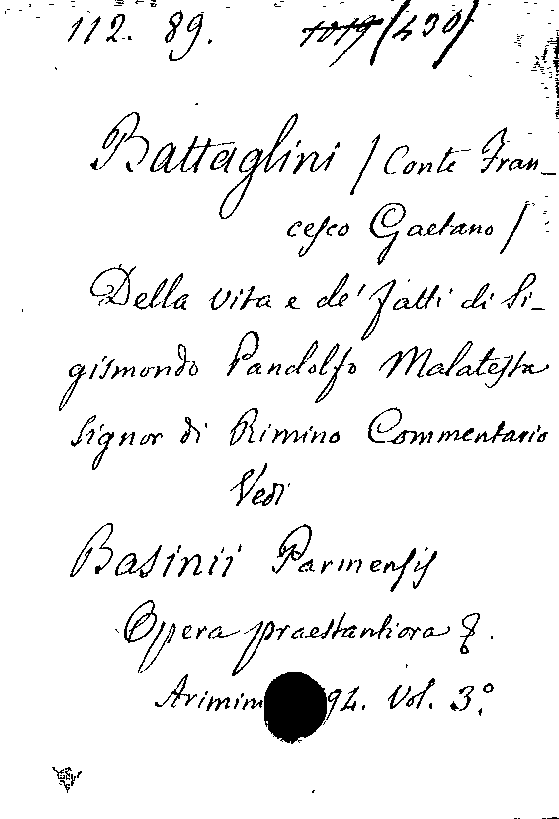 112. 89. 1019/(430)
Battaglini / Conte Fran-
cesco Gaetano /
Della vita e de' fatti di Si-
gismondo Pandolfo Malatesta
Signor di Rimino Commentario
Vedi
Basinii Parmensis
Opera praestantiora
Arimin 94. Vol. 3°.